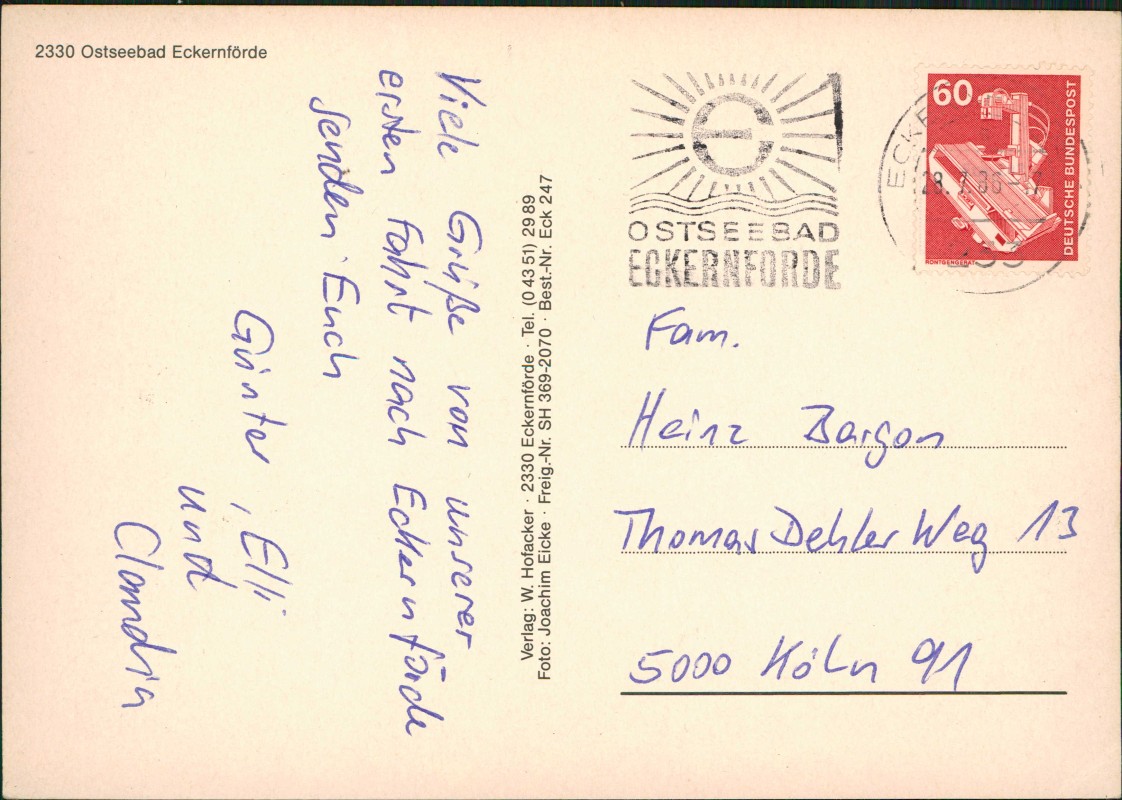 2330 Ostseebad Eckernförde
Viele Grüße von unserer
ersten Fahrt nach Eckernförde
senden Euch
Günter, Elli
und
Claudia
Verlag: W. Hofacker · 2330 Eckernförde · Tel. (0 43 51) 29 89
Foto: Joachim Eicke · Freig.-Nr. SH 369-2070 · Best.-Nr. Eck 247
OSTSEEBAD
ECKERNFÖRDE
60
DEUTSCHE BUNDESPOST
RÖNTGENGERÄT
28.7.86
Fam.
Heinz Bargon
Thomas Dehler Weg 13
5000 Köln 91